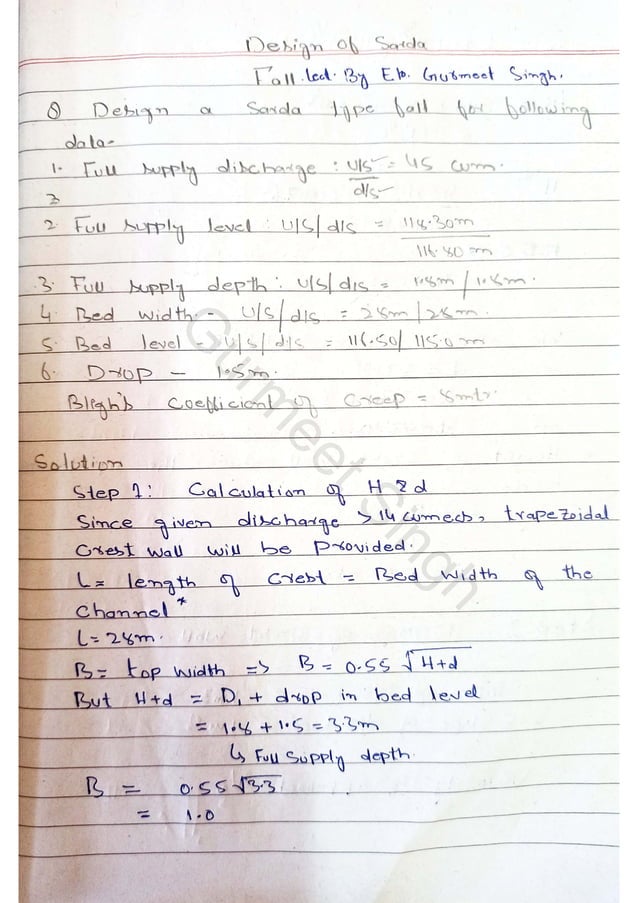 Design of Sarda
Fall. Lect. By Er. Gurmeet Singh.
Q Design a Sarda type fall for following
data-
1. Full supply discharge : U/S = 45 cum.
d/s
2
2. Full supply level : U/S/d/s = 118.30m
116.80 m
3. Full supply depth : U/S/d/s = 1.8m / 1.8m.
4. Bed width. U/S/d/s = 28m / 28m.
5. Bed level - U/S/d/s = 116.50/ 115.0m
6. Drop - 1.5m.
Bligh's Coefficient of Creep = 8mtr.
Solution
Step 1: Calculation of H & d
Since given discharge > 14 cumecs, trapezoidal
Crest wall will be Provided.
L = length of Crest = Bed width of the
Channel*
L = 28m.
B = top width => B = 0.55 √H+d
But H+d = D₁ + drop in bed level
= 1.8 + 1.5 = 3.3m
↳ Full supply depth.
B = 0.55 √3.3
= 1.0
Gurmeet Singh